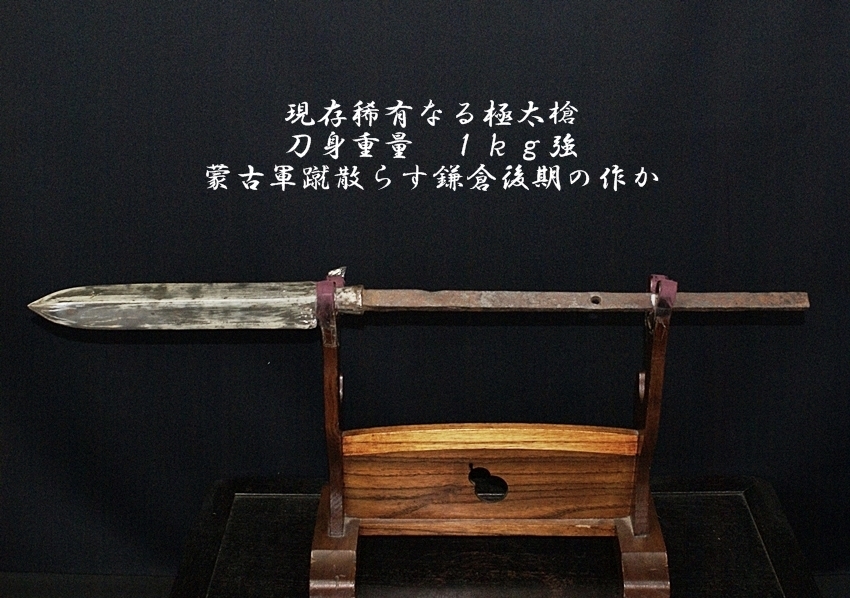 現存稀有なる極太槍
刀身重量　１ｋｇ強
蒙古軍蹴散らす鎌倉後期の作か